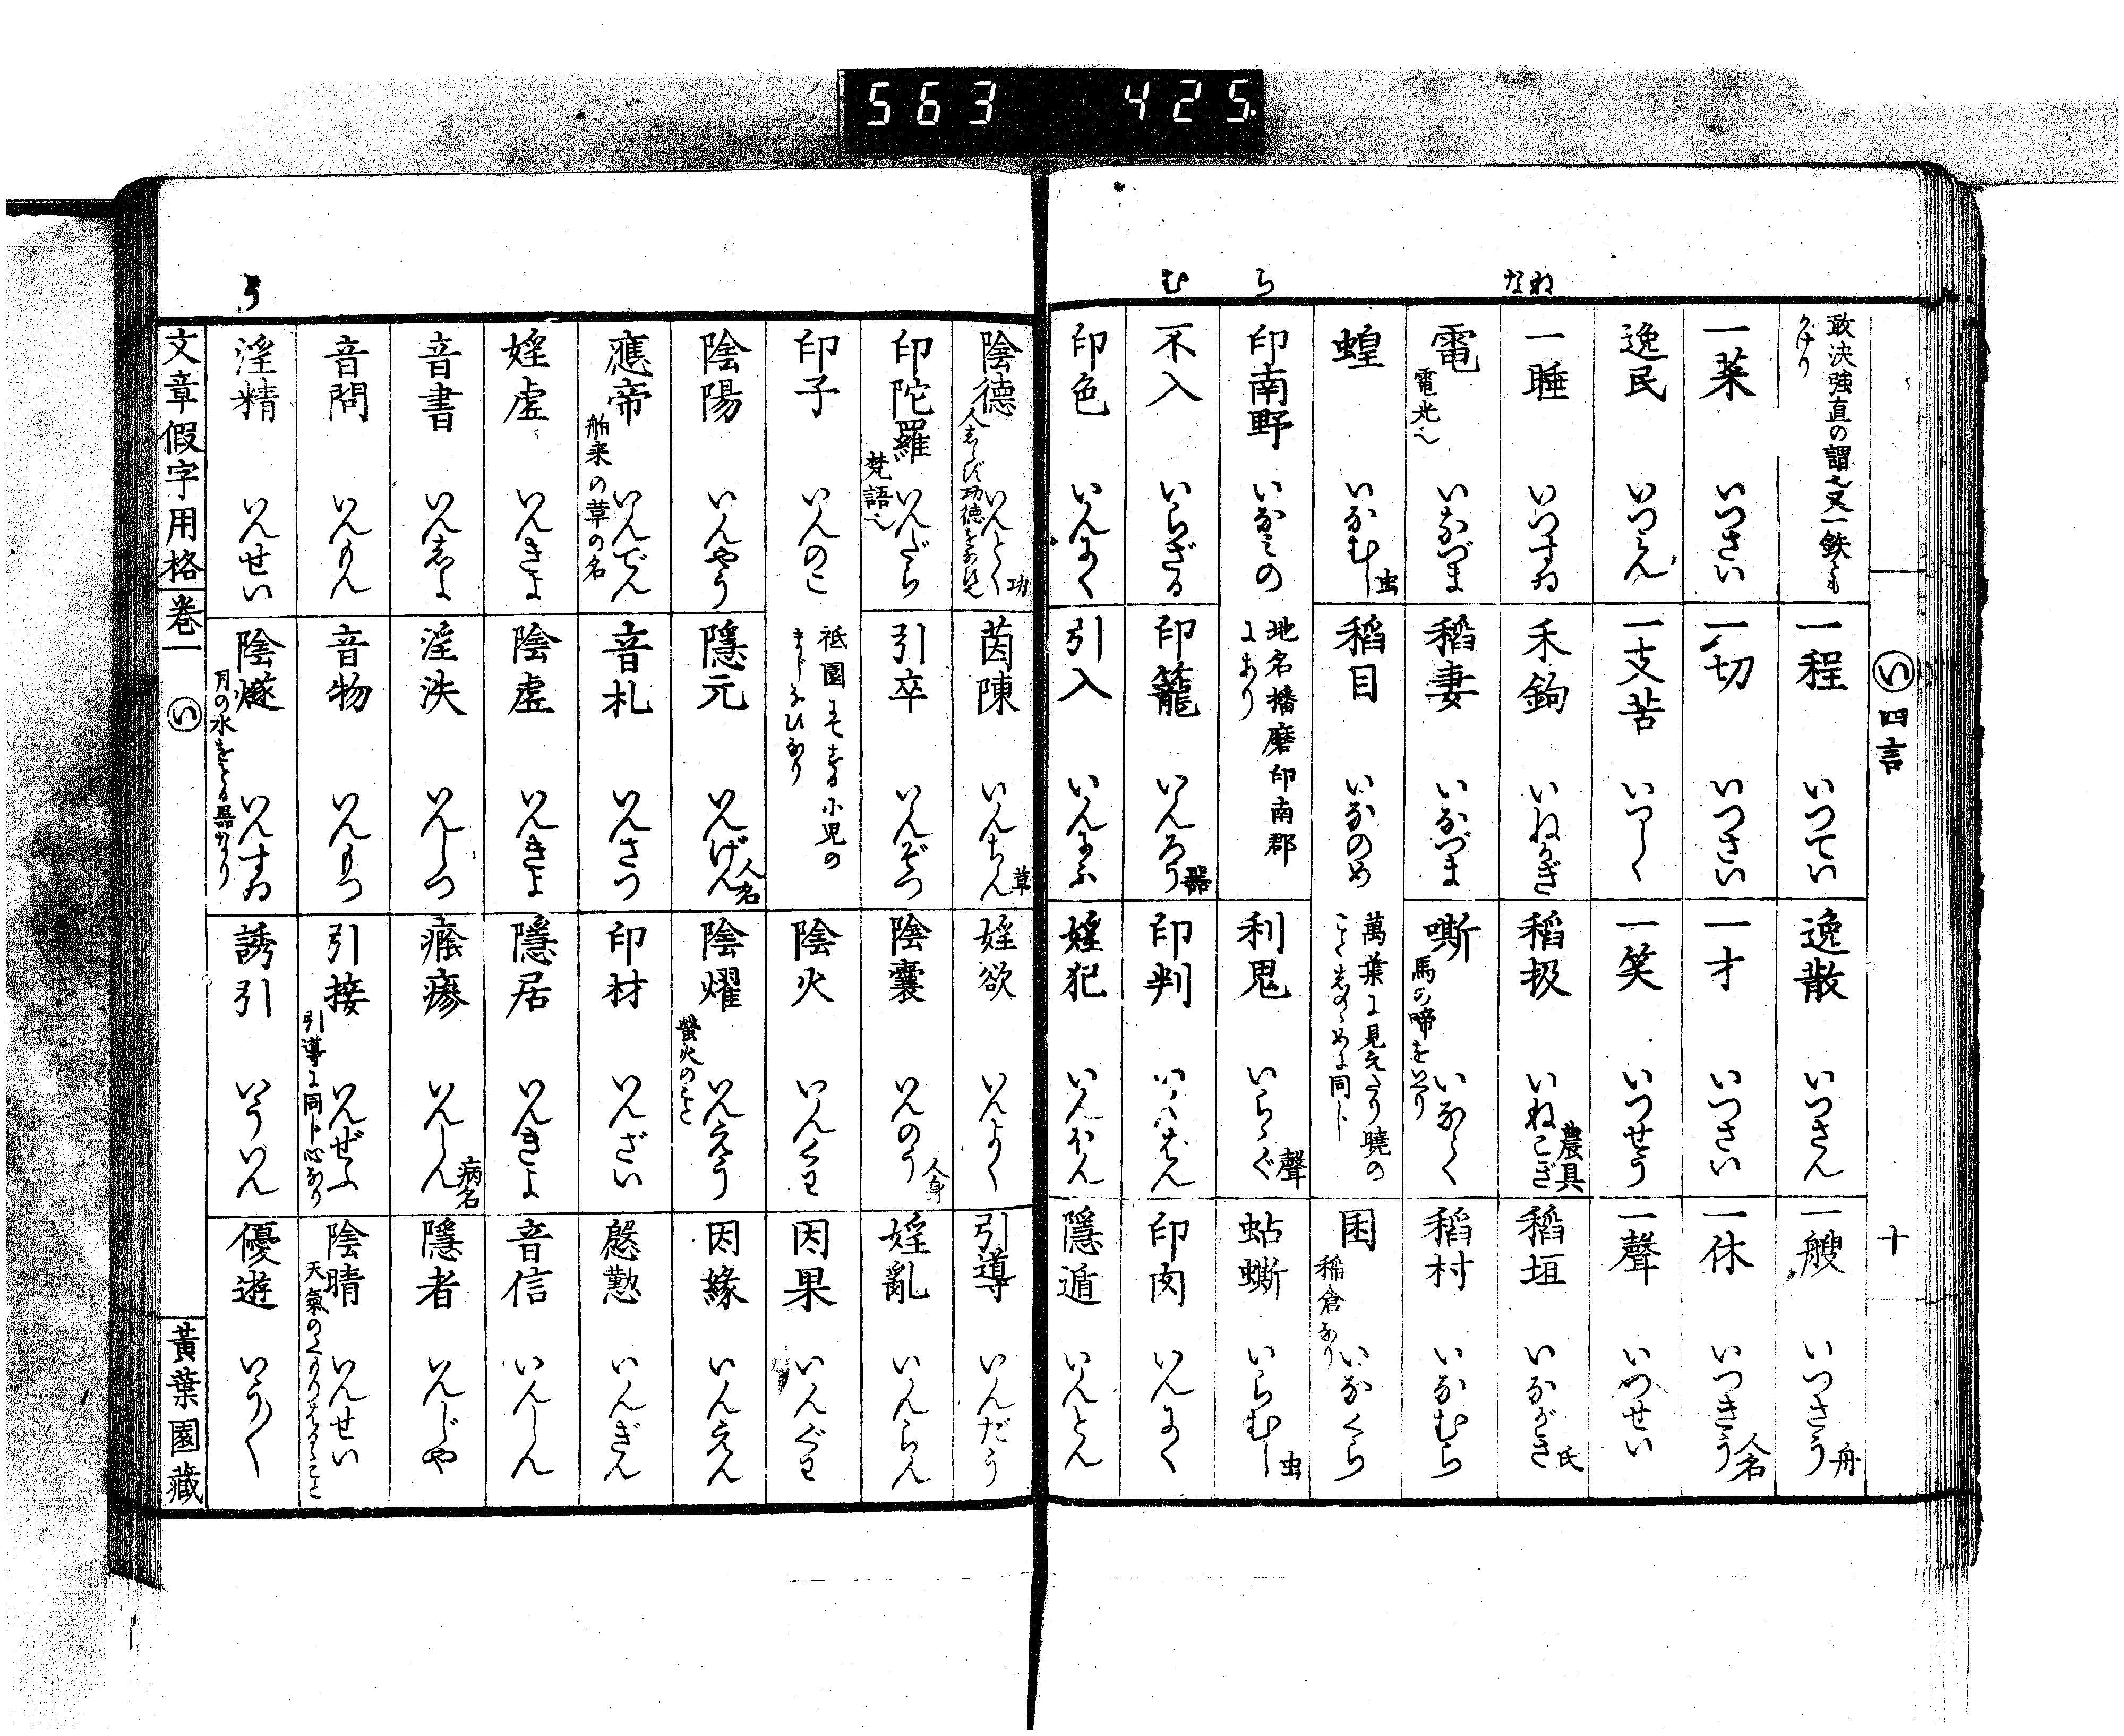 563 425
い 四言 十
なね
ら
む
敢決強直の謂也又一鉄とも
かけり
一程 いつてい
逸散 いつさん
一艘 いつさう 舟
一菜 いつさい
一切 いつさい
一才 いつさい
一休 いつきう 人名
逸民 いつみん
一支苦 いつしく
一笑 いつせう
一聲 いつせい
一睡 いつすゐ
禾鉤 いねかぎ
稲扱 いねこぎ 農具
稲垣 いながき 氏
電 いなづま
電光也
稲妻 いなづま
嘶 いなゝく
馬の啼をいへり
稲村 いなむら
蝗 いなむし 虫
稲目 いなのめ
萬葉に見えたり曉の
ことしのゝめに同じ
囷 いなくら
稲倉なり
印南野 いなみの
地名播磨印南郡
にあり
利鬼 いらゝぐ 聲
蛅蟖 いらむし 虫
不入 いらざる
印籠 いんろう 器
印判 いんばん
印肉 いんにく
印色 いんにく
引入 いんにふ
婬犯 いんぼん
隱遁 いんとん
う
陰德 いんとく 功
茵陳 いんちん 草
婬欲 いんよく
引導 いんだう
印陀羅 いんだら
梵語也
引卒 いんぞつ
陰嚢 いんのう 人身
婬亂 いんらん
印子 いんのこ
祗園にてする小児の
まじなひなり
陰火 いんくわ
因果 いんぐわ
陰陽 いんやう
隱元 いんげん 人名
陰燿 いんえう
螢火のこと
因緣 いんえん
應帝 いんでん
舶来の草の名
音札 いんさつ
印材 いんざい
慇懃 いんぎん
婬虚 いんきよ
陰虚 いんきよ
隱居 いんきよ
音信 いんしん
音書 いんしよ
淫泆 いんしつ
癮瘮 いんしん 病名
隱者 いんじや
音問 いんもん
音物 いんもつ
引接 いんぜふ
引導に同じ心なり
陰晴 いんせい
天氣のくもりはるゝこと
淫精 いんせい
陰燧 いんすゐ
月の水をとる器なり
誘引 いういん
優遊 いう〳〵
文章假字用格 卷一 い 黃葉園藏